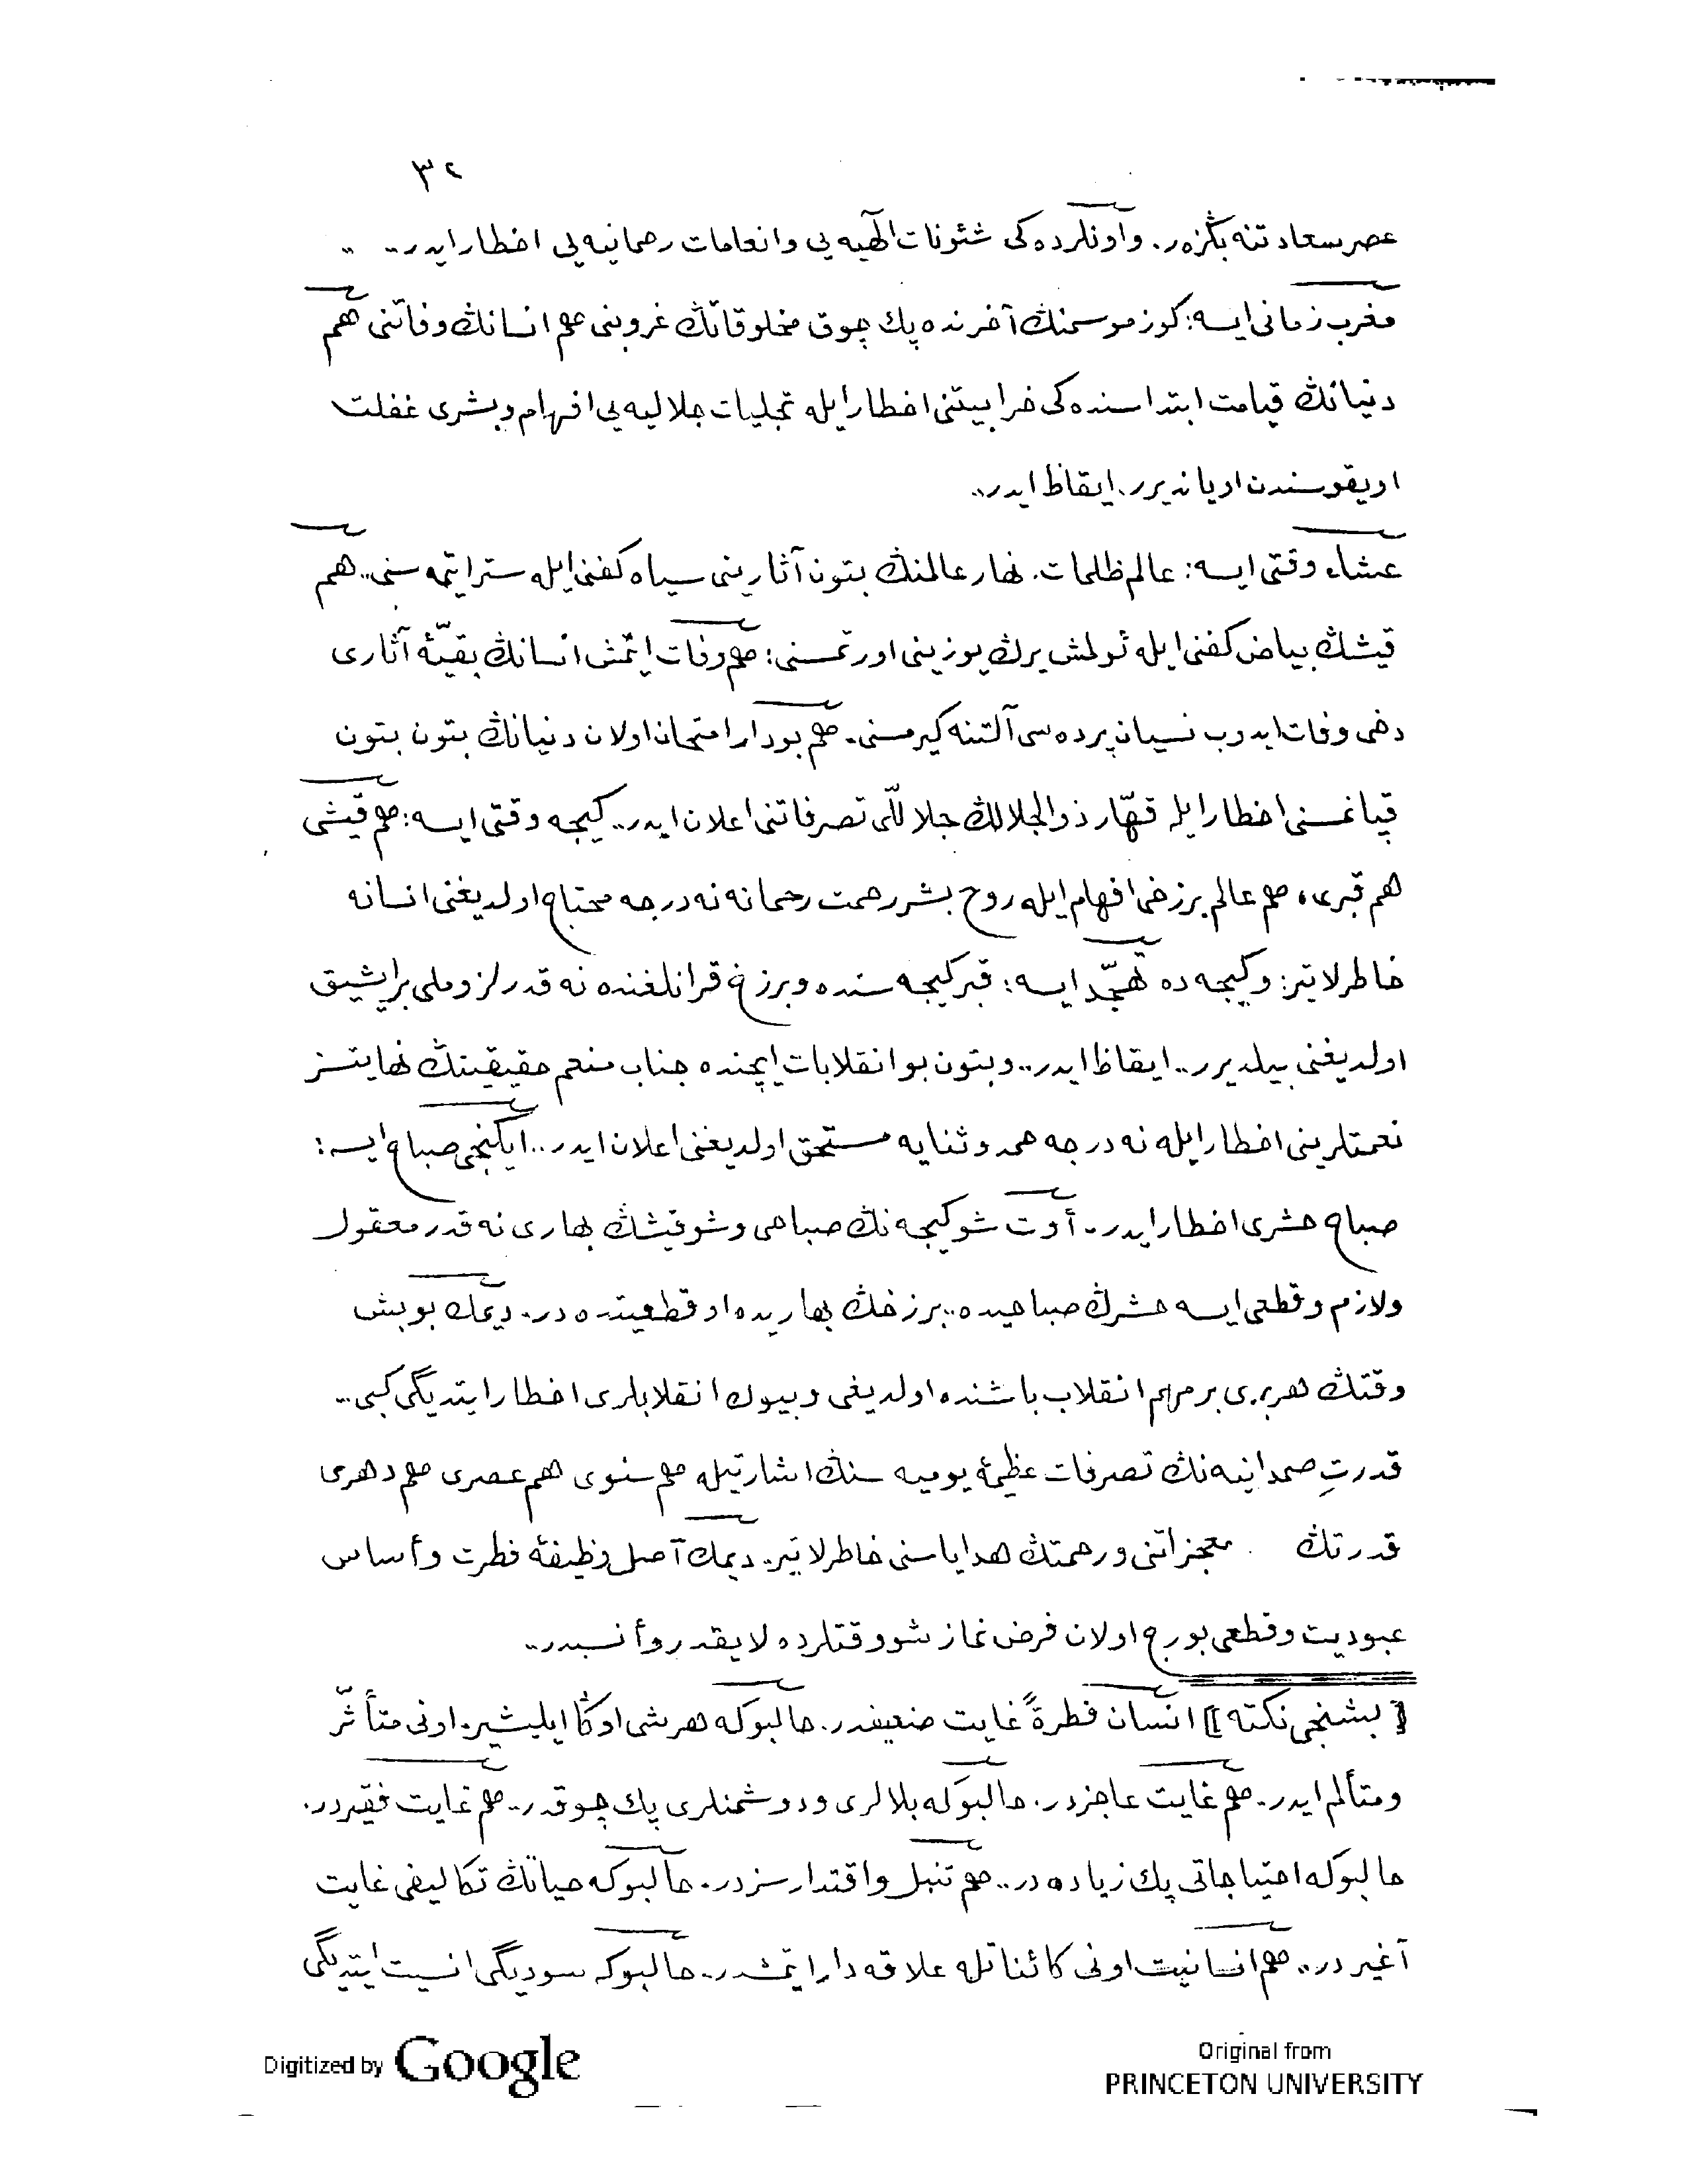 ٣٢
عصر سعادتنه بكزه ر. و أونلرده كى شئونات الٓهيه يى و انعامات رحمانيه يى اخطار ايدر..
مغرب زمانى ايسه: كوز موسمنڭ آخرنده پك چوق مخلوقاتڭ غروبنى هم انسانڭ وفاتنى هم
دنيانڭ قيامت ابتداسنده كى خرابيتنى اخطار ايله تجليات جلاليه يى افهام و بشرى غفلت
اويقوسندن اوياندیرر. ايقاظ ايدر..
عشاء وقتى ايسه: عالم ظلمات. نهار عالمنڭ بتون آثارينى سياه كفنى ايله ستر ايتمه سنى.. هم
قيشڭ بياض كفنى ايله ئولمش يرڭ يوزينى اورتمسنى: هم وفات ايتمش انسانڭ بقيّۀ آثارى
دخى وفات ايدوب نسيان پرده سى آلتنه كيرمسنى. هم بو دار امتحان اولان دنيانڭ بتون بتون
قپانمسنى اخطار ايله قهّار ذوالجلالڭ جلاللّى تصرفاتنى اعلان ايدر.. كيجه وقتى ايسه: هم قيشى
هم قبرى، هم عالم برزخى افهام ايله روح بشر رحمت رحمانه نه درجه محتاج اولديغنى انسانه
خاطرلاتير: و كيجه ده تهجّد ايسه: قبر كيجه سنده و برزخ قراڭلغنده نه قدر لزوملى بر ايشيق
اولديغنى بيلديرر.. ايقاظ ايدر.. و بتون بو انقلابات ايچنده جناب منعم حقيقينڭ نهايتسز
نعمتلرينى اخطار ايله نه درجه حمد و ثنايه مستحق اولديغنى اعلان ايدر.. ايكنجى صباح ايسه:
صباح حشرى اخطار ايدر. أوت شو كيجه نڭ صباحى و شو قيشڭ بهارى نه قدر معقول
و لازم و قطعى ايسه حشرڭ صباحيده.. برزخڭ بهاريده او قطعيتده در. ديمك بو بش
وقتڭ هربرى بر مهم انقلاب باشنده اولديغى و بيوك انقلابلرى اخطار ايتديگى كبى..
قدرتِ صمدانيه نڭ تصرفات عظيمۀ يوميه سنڭ اشارتيله هم سنوى هم عصرى هم دهرى
قدرتڭ معجزاتنى و رحمتڭ هداياسنى خاطرلاتير. ديمك آصل وظيفۀ فطرت و أساس
عبوديت و قطعى بورج اولان فرض نماز شو وقتلرده لايقدر و أنسبدر..
[ بشنجى نكته ] انسان فطرةً غايت ضعيفدر. حالبوكه هر شى اوكا ايليشير. اونى متأثّر
و متألم ايدر. هم غايت عاجزدر. حالبوكه بلالرى و دوشمنلرى پك چوقدر.. هم غايت فقيردر.
حالبوكه احتياجاتى پك زياده در.. هم تنبل و اقتدارسزدر. حالبوكه حياتڭ تكاليفى غايت
آغيردر.. هم انسانيت اونى كائناتله علاقه دار ايتمشدر. حالبوكه سوديگى انسيت ايتديگى
Digitized by Google
Original from
PRINCETON UNIVERSITY